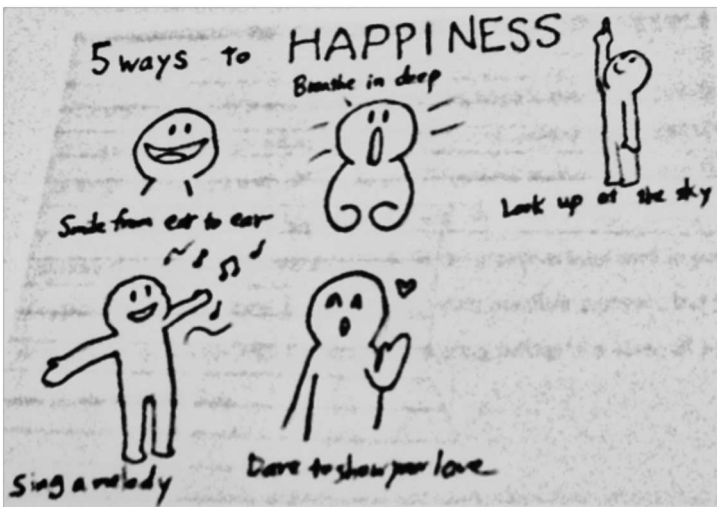 5 ways to HAPPINESS
Breathe in deep
Smile from ear to ear
Look up at the sky
Sing a melody
Dare to show your love